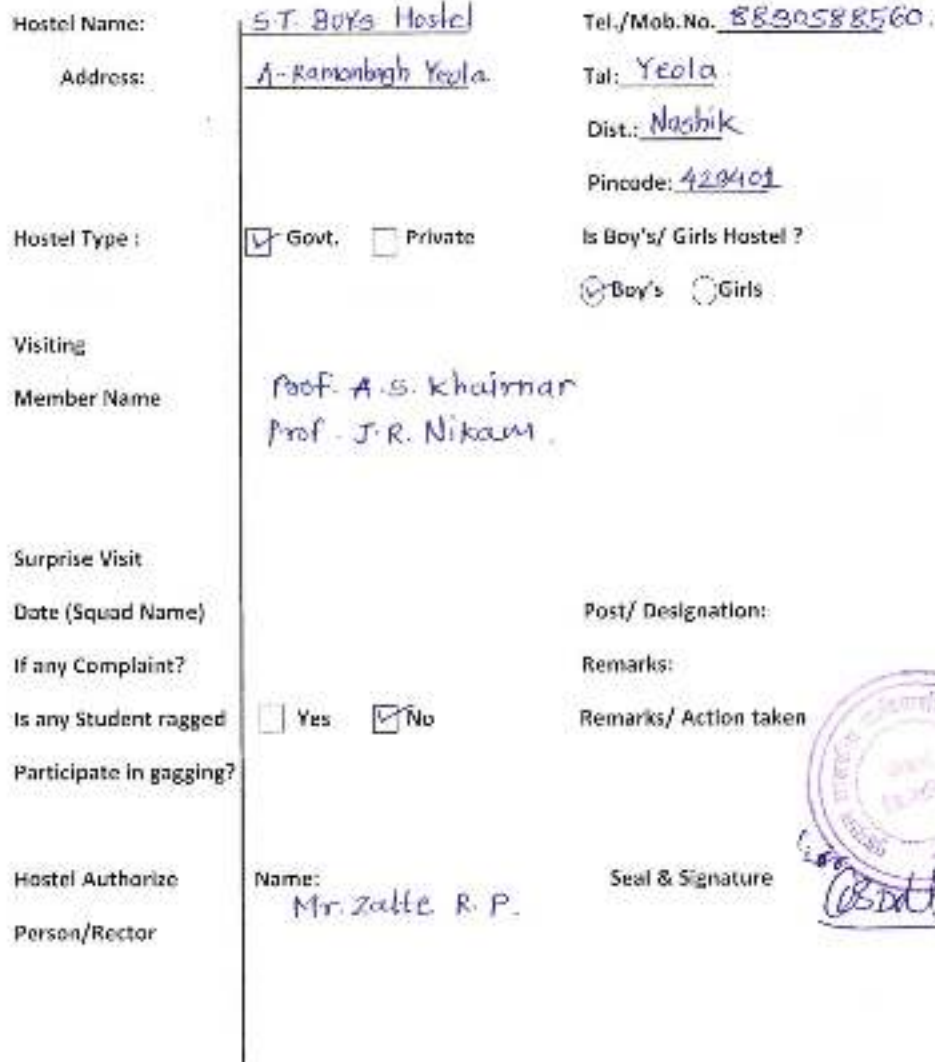 Hostel Name: S.T. Boys Hostel Tel./Mob.No. 8830588560.
Address: A-Ramanbagh Yeola Tal: Yeola
Dist.: Nashik
Pincode: 423401
Hostel Type : Govt. Private Is Boy's/ Girls Hostel ?
Boy's Girls
Visiting
Member Name Prof. A.S. Khairnar
Prof. J.R. Nikam.
Surprise Visit
Date (Squad Name) Post/ Designation:
If any Complaint? Remarks:
Is any Student ragged Yes No Remarks/ Action taken
Participate in gagging?
Hostel Authorize Name: Seal & Signature
Mr. Zalte R. P.
Person/Rector